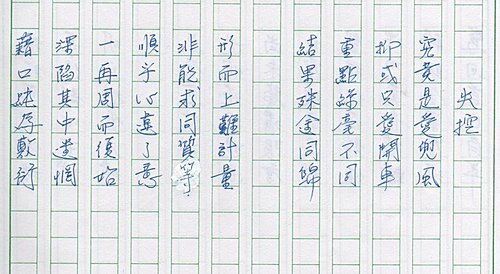 失控
究竟是愛兜風
抑或只愛開車
重點絲毫不同
結果殊途同歸
形而上難計量
非能求同質等
順乎心違了意
一再周而復始
深陷其中惘
藉口純存敷衍